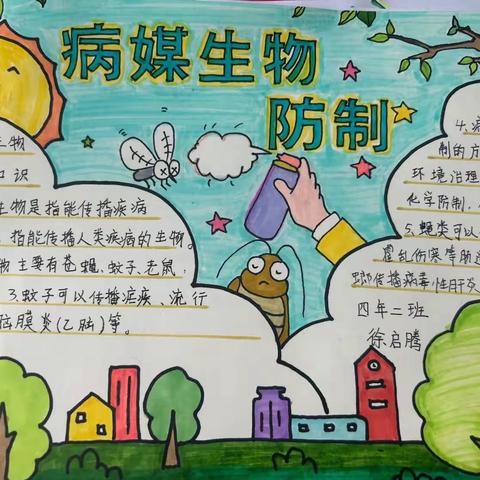 病媒生物
防制
生物
知识
生物是指能传播疾病
指能传播人类疾病的生物。
物主要有苍蝇、蚊子、老鼠、
3.蚊子可以传播疟疾、流行
脑膜炎(乙脑)等。
4.病
制的方
环境治理
化学防制、
5.蝇类可以
霍乱伤寒等肠道
蟑螂传播病毒性肝炎
四年二班
徐启腾